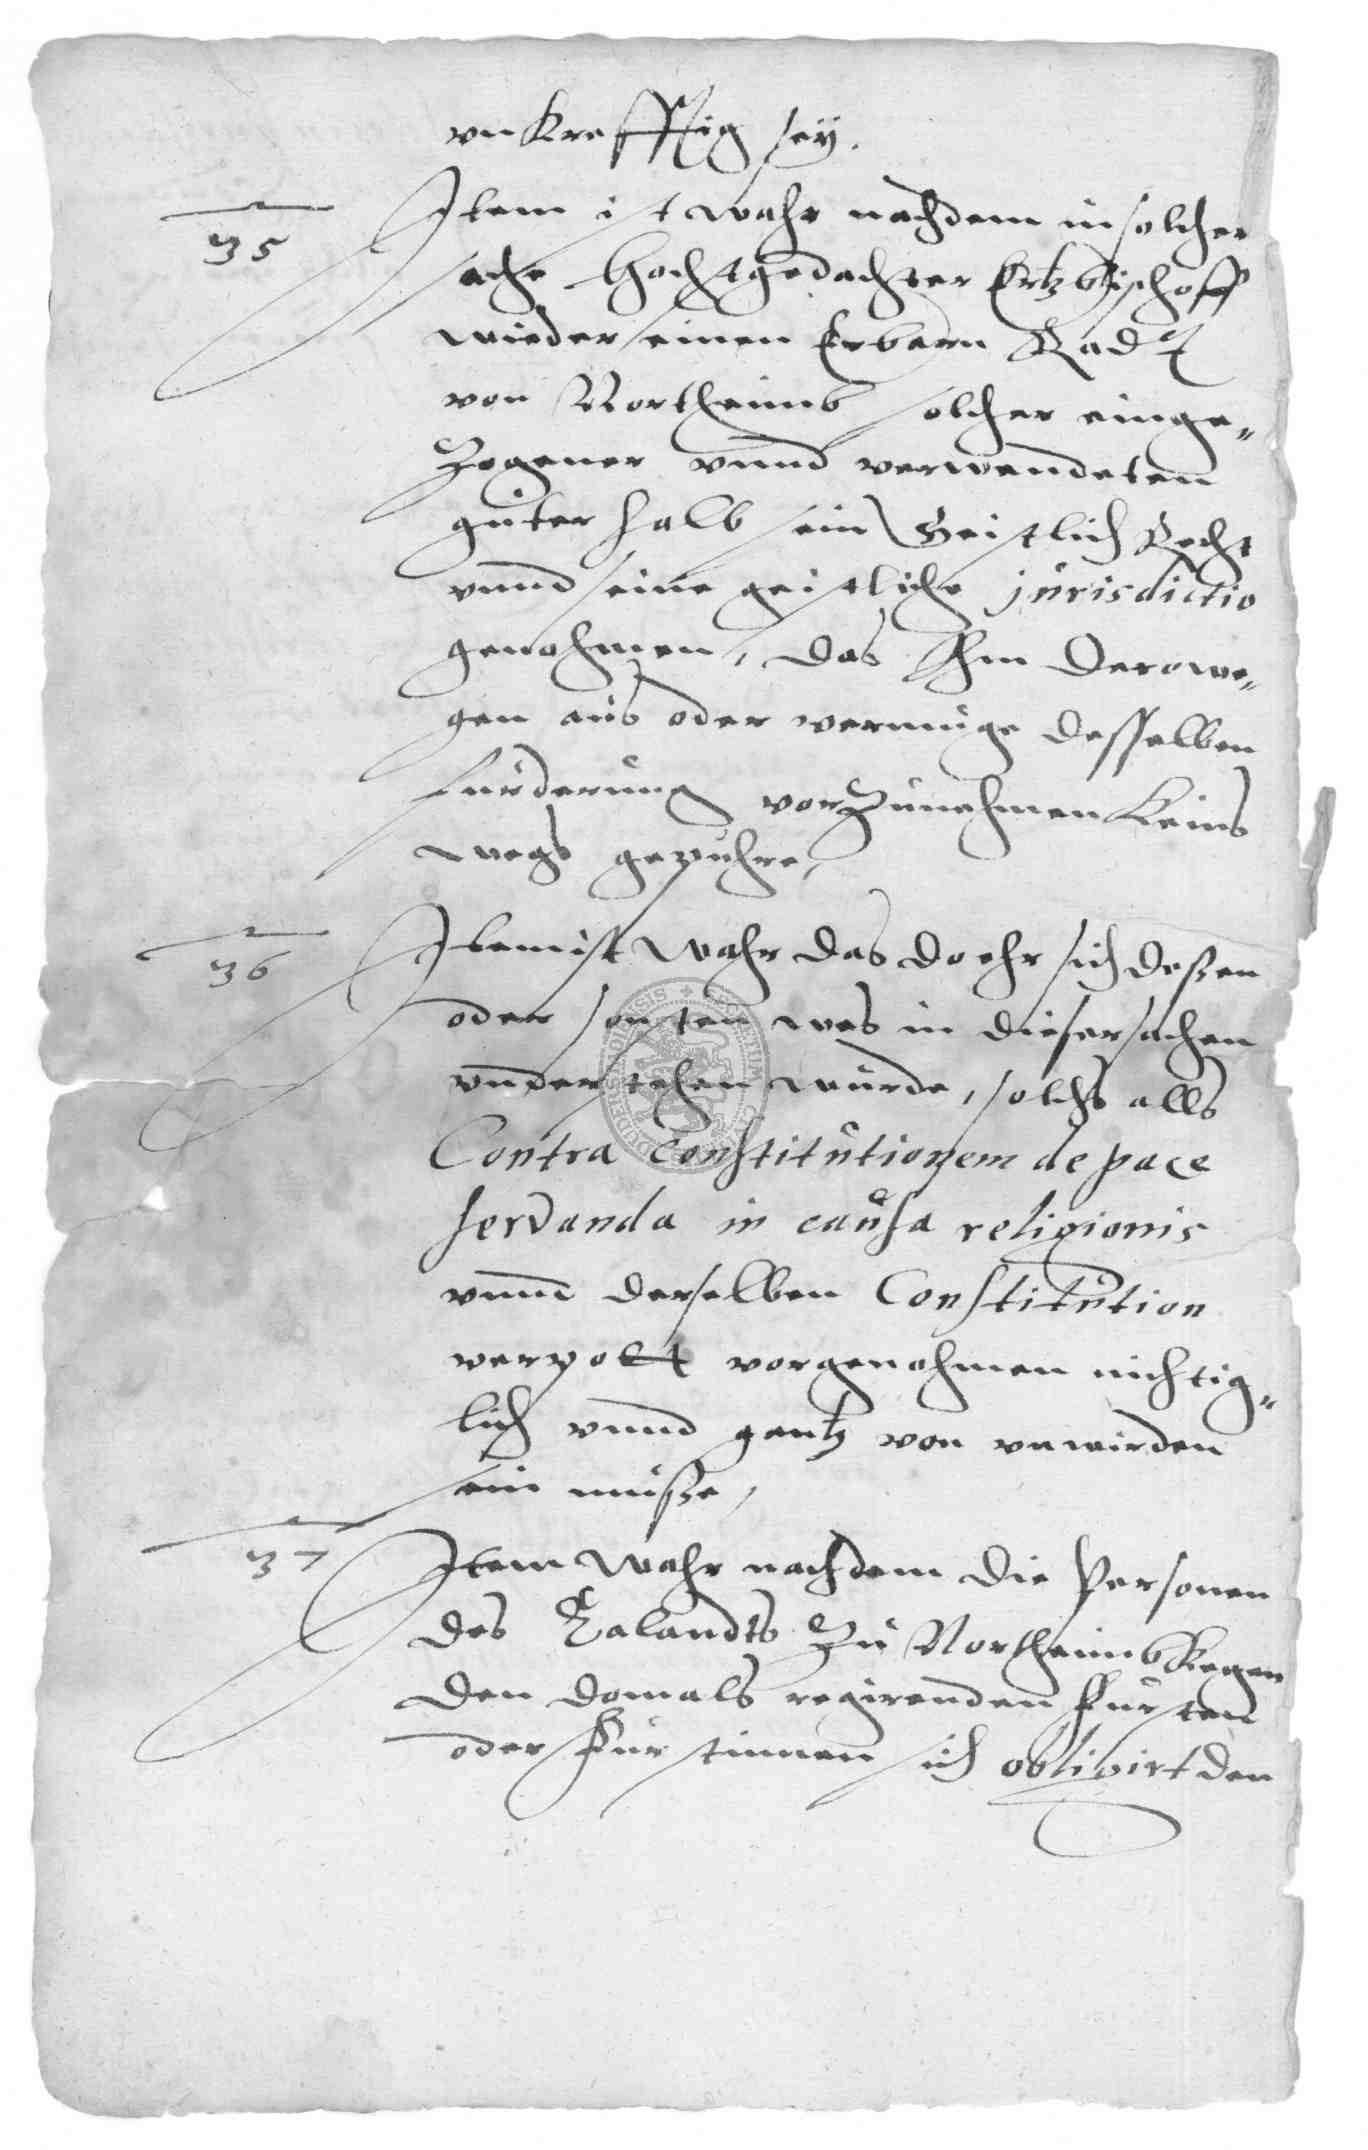 vnkrefftig sey.
35
Item ist wahr nachdem in solcher
sache Hochstgedachter Ertzbischoff
wieder einen Erbarn Radt
von Northeimb solcher einge„
Zogener vnnd verwendeten
güter halb sein Geistlich Recht
vnnd seine geistliche jurisdictio
genohmen, das Ihm derowe„
gen aus oder vermüge desselben
fürderung vorzunehmen keins
wegs gepühre,
36
Item ist wahr das do ehr sich deßen
oder sonsten was in dieser sachen
vnderstehen würde, solchs alls
Contra constitutionem de pace
servanda in causa religionis
vnnd derselben Constitution
verpott vorgenohmen nichtig„
lich vnnd gantz von vnwirden
sein müße,
37
Item wahr nachdem die Personen
des Kalandts Zu Northeimb kegen
den domals regirenden Fürsten
oder Fürstinnen sich obligirt den